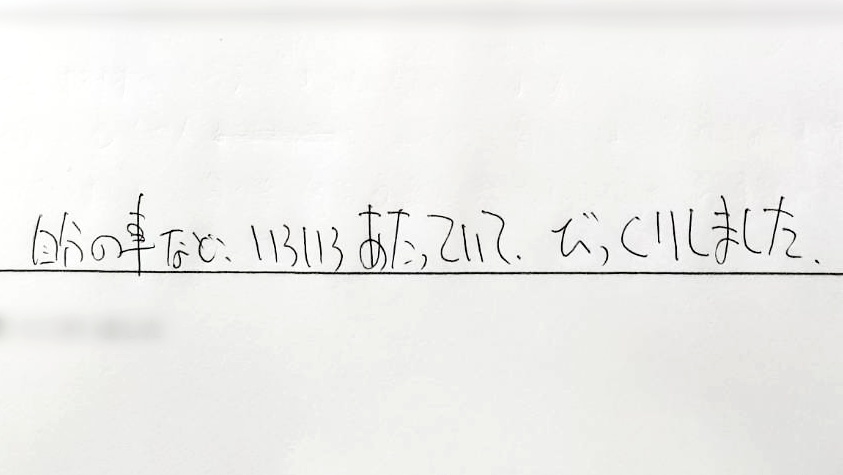 自分の事など、いろいろあたっていて、びっくりしました。